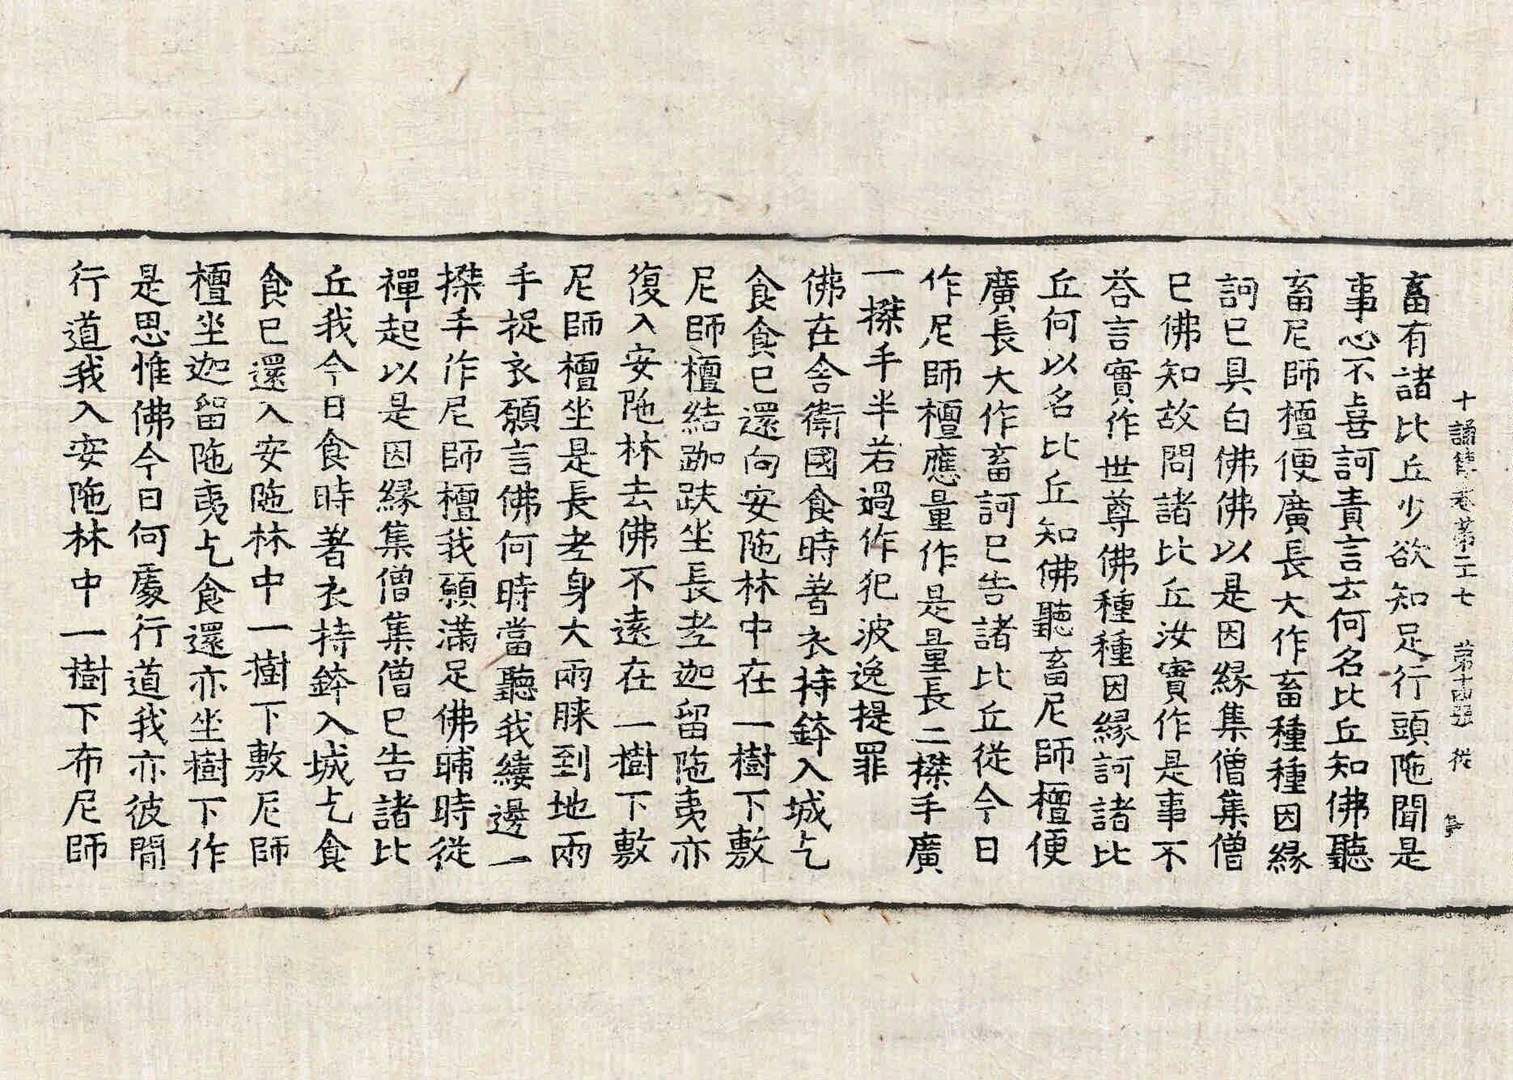 十誦律卷第二十七 第十四張 從
畜有諸比丘少欲知足行頭陁聞是
事心不喜訶責言云何名比丘知佛聽
畜尼師檀便廣長大作畜種種因緣
訶已具白佛佛以是因緣集僧集僧
已佛知故問諸比丘汝實作是事不
荅言實作世尊佛種種因緣訶諸比
丘何以名比丘知佛聽畜尼師檀便
廣長大作畜訶已告諸比丘從今日
作尼師檀應量作是量長二搩手廣
一搩手半若過作犯波逸提罪
佛在舍衛國食時著衣持鉢入城乞
食食已還向安陁林中在一樹下敷
尼師檀結跏趺坐長老迦留陁夷亦
復入安陁林去佛不遠在一樹下敷
尼師檀坐是長老身大兩䏶到地兩
手捉衣願言佛何時當聽我縷邊一
搩手作尼師檀我願滿足佛晡時從
禪起以是因緣集僧集僧已告諸比
丘我今日食時著衣持鉢入城乞食
食已還入安陁林中一樹下敷尼師
檀坐迦留陁夷乞食還亦坐樹下作
是思惟佛今日何處行道我亦彼間
行道我入安陁林中一樹下布尼師